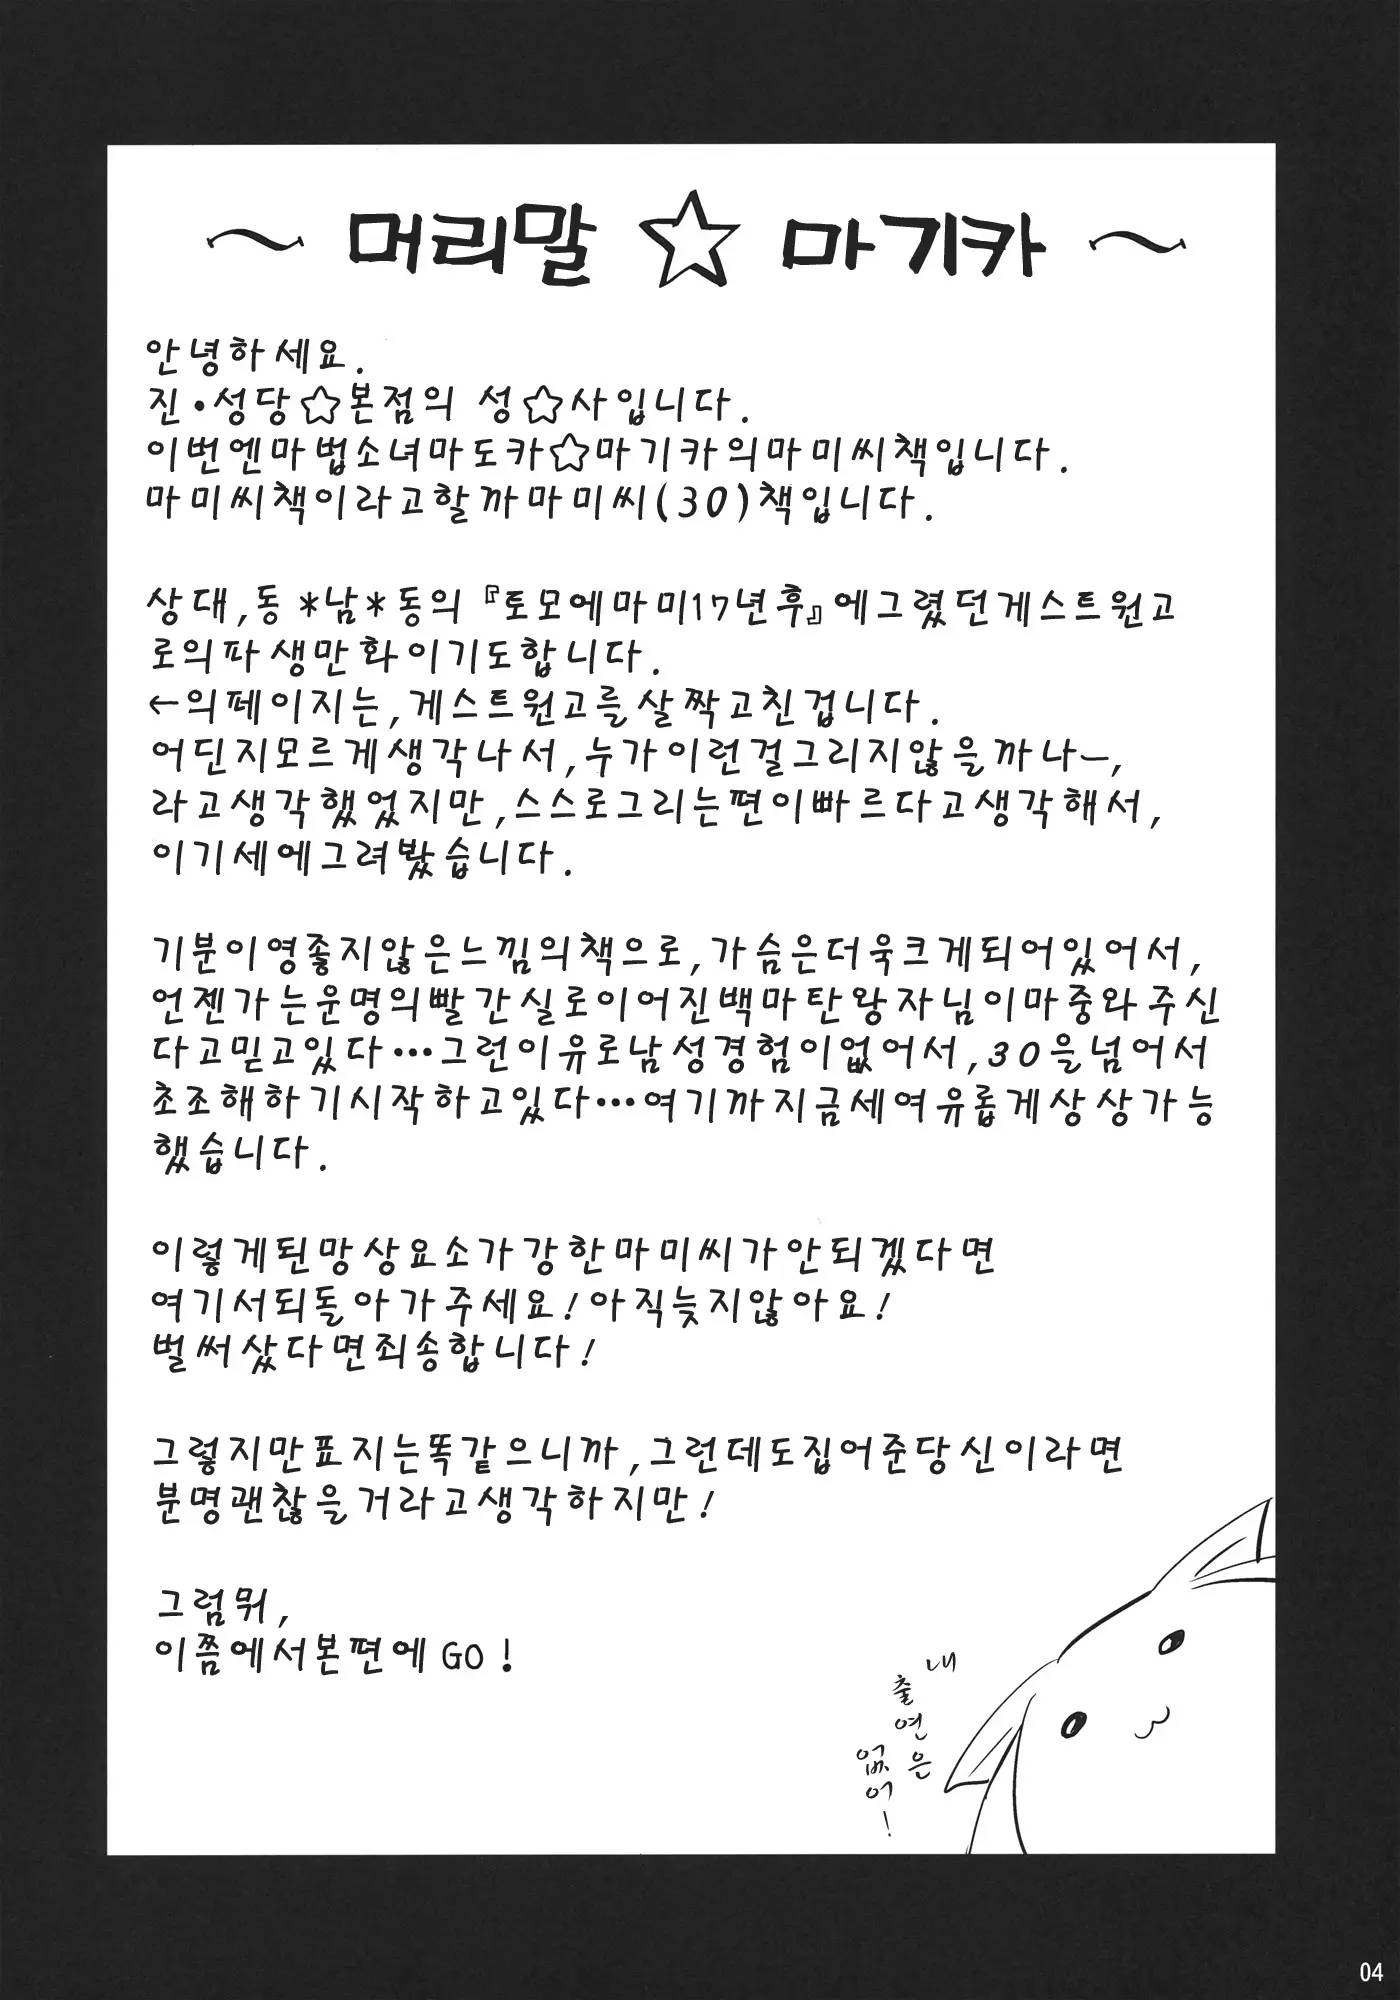 ～ 머리말 ☆ 마기카 ～
안녕하세요.
진·성당☆본점의 성☆사입니다.
이번엔마법소녀마도카☆마기카의마미씨책입니다.
마미씨책이라고할까마미씨(30)책입니다.
상대,동*남*동의『토모에마미17년후』에그렸던게스트원고
로의파생만화이기도합니다.
←의페이지는,게스트원고를살짝고친겁니다.
어딘지모르게생각나서,누가이런걸그리지않을까나ー,
라고생각했었지만,스스로그리는편이빠르다고생각해서,
이기세에그려봤습니다.
기분이영좋지않은느낌의책으로,가슴은더욱크게되어있어서,
언젠가는운명의빨간실로이어진백마탄왕자님이마중와주신
다고믿고있다…그런이유로남성경험이없어서,30을넘어서
초조해하기시작하고있다…여기까지금세여유롭게상상가능
했습니다.
이렇게된망상요소가강한마미씨가안되겠다면
여기서되돌아가주세요!아직늦지않아요!
벌써샀다면죄송합니다!
그렇지만표지는똑같으니까,그런데도집어준당신이라면
분명괜찮을거라고생각하지만!
그럼뭐,
이쯤에서본편에GO!
내
출연은
없어!
04